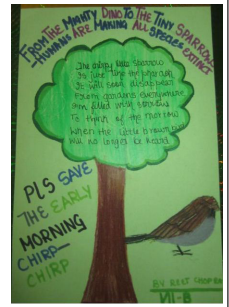 FROM THE MIGHTY DINO TO THE TINY SPARROW
HUMANS ARE MAKING ALL SPECIES EXTINCT
The chirpy little sparrow
Is just like the pharaoh
It will soon disappear
From gardens everywhere
I'm filled with sorrow
To think of the morrow
When the little brown bird
Will no longer be heard
PLS SAVE
THE EARLY
MORNING
CHIRP-
CHIRP
BY
VII-B